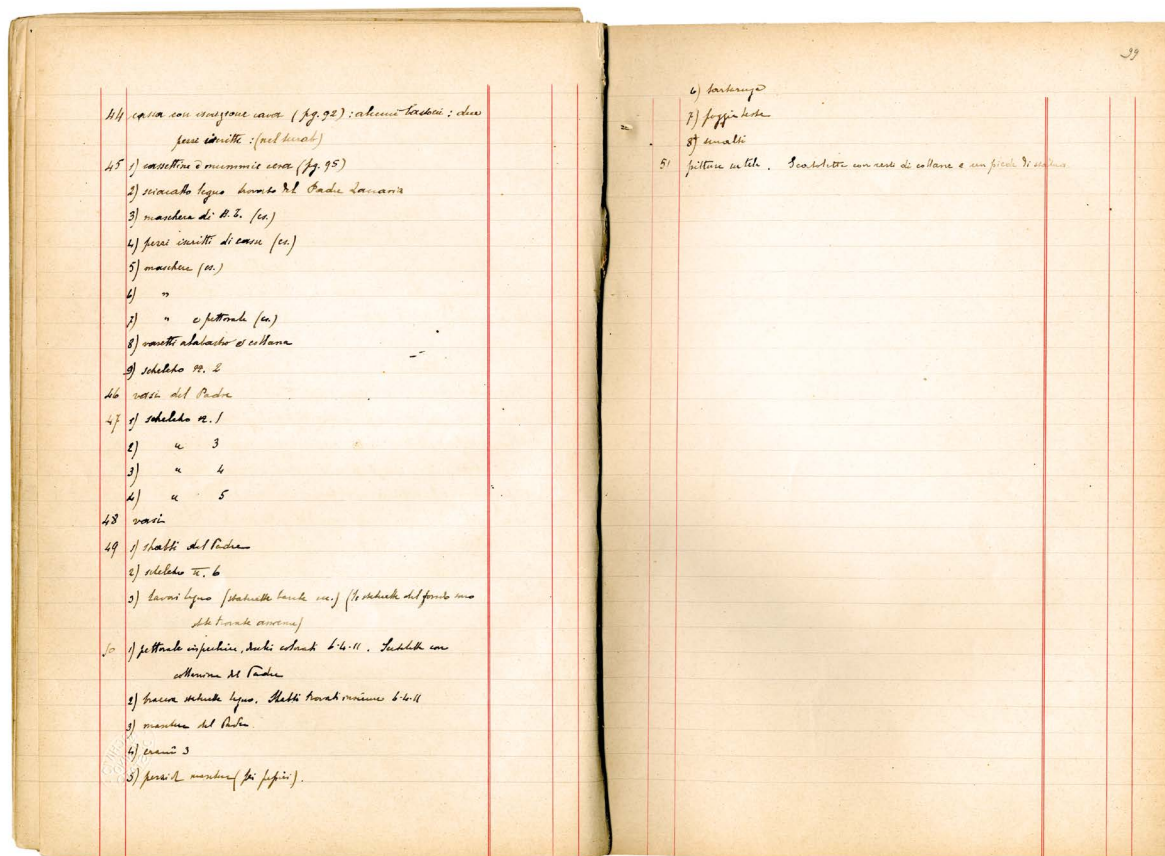 44 cassa con iscrizione cava (pg. 92) : alcuni : due
pezzi iscritti : (nel
45 1) cassettine e mummie cera (pg. 95)
2) sciacallo legno trovato del Padre Zaccaria
3) maschera di (cs.)
4) pezzi iscritti di casse (cs.)
5) maschere (cs.)
6) "
7) " e pettorale (cs.)
8) vasetti alabastro e collana
9) scheletro n. 2
46 vasi del Padre
47 1) scheletro n. 1
2) " 3
3) " 4
4) " 5
48 vasi
49 1) shabti del Padre
2) scheletro n. 6
3) legno (statuette barche ecc.) (le statuette del fondo sono
state trovate assieme)
50 1) pettorale dischi colorati 6-4-11. Scatolette con
del Padre
2) braccia statuette legno. Shabti trovati insieme 6-4-11
3) maschera del Padre
4) crani 3
5) pezzi di maschera (fai papiri).
99
6) tartaruga
7) poggia teste
8) smalti
51 pitture in tela. Scatolette con resti di collane e un piede di